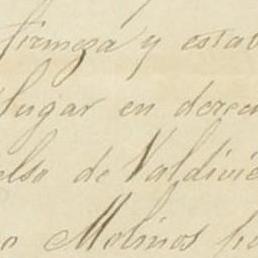 firmeza y estab
lugar en derec
elso de Valdivie
o Molinos po